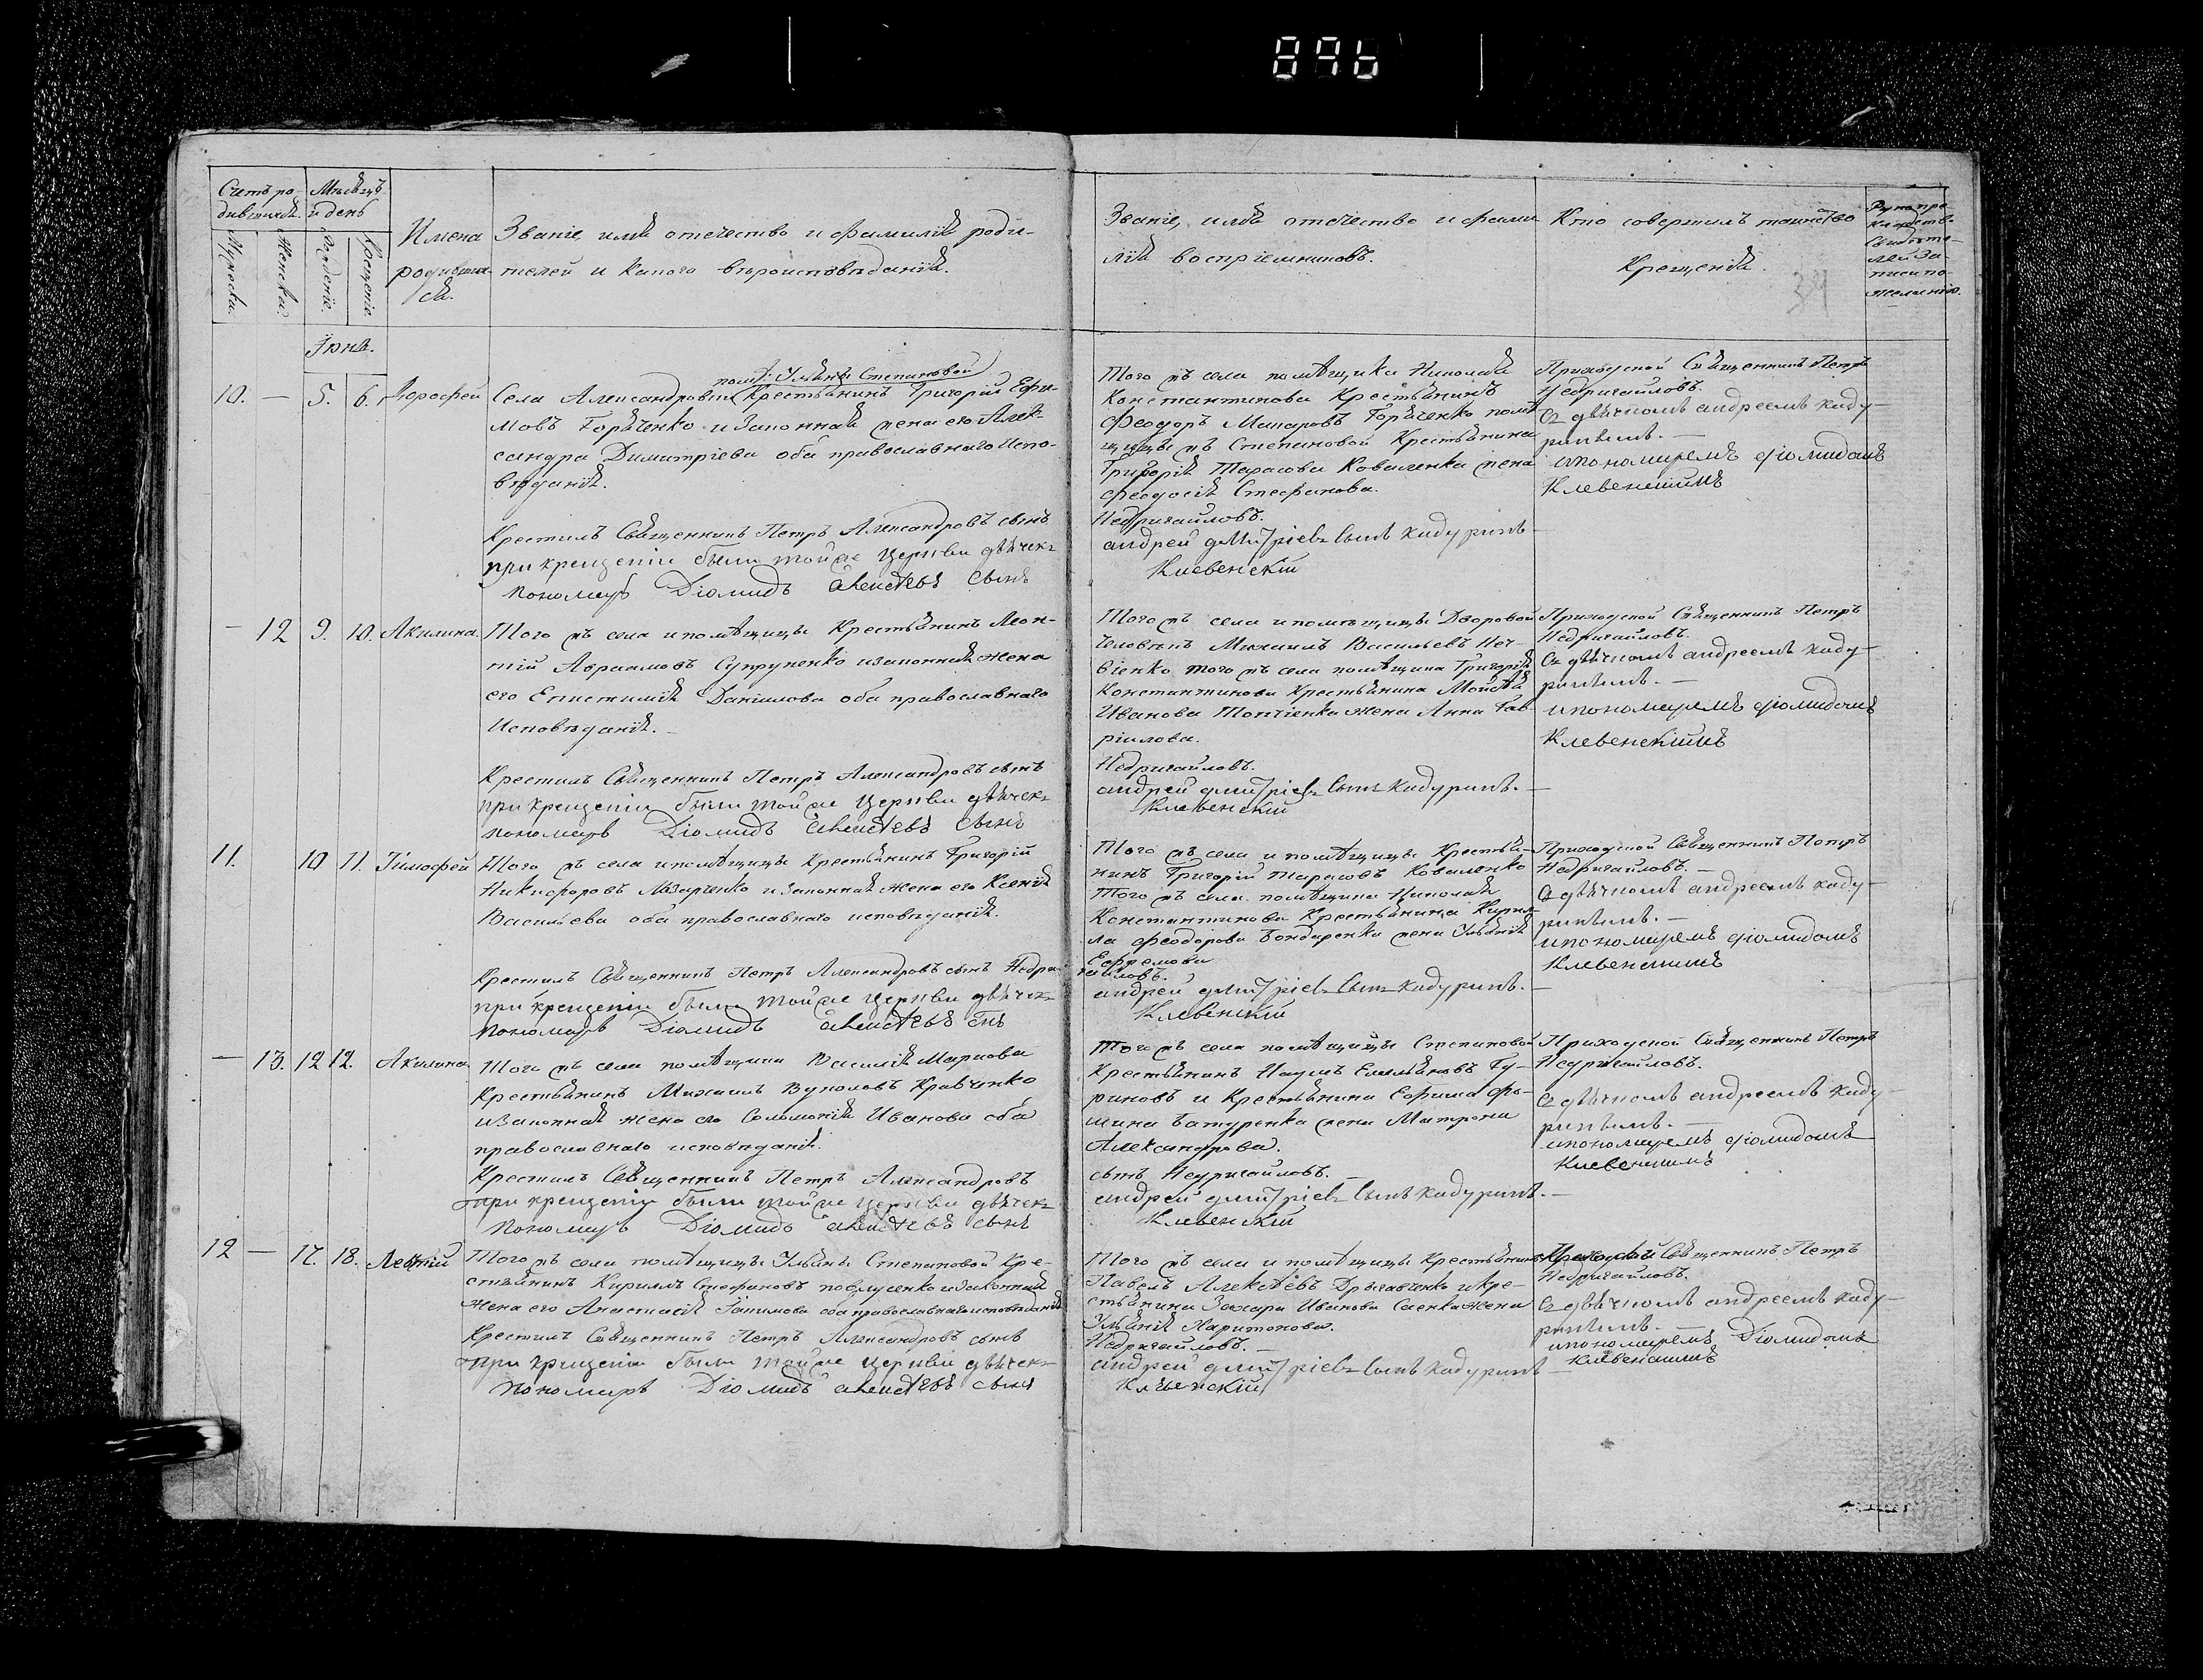 896
Счетъ ро-
дившихся.
Мѣсяцъ
и день
Мужеска.
Женска.
Рожденіе.
Крещеніе.
Имена
родивших-
ся.
Званіе, имя отечество и фамилія роди-
телей и какого вѣроисповѣданія.
Званіе, имя отечество и фами-
лія воспріемниковъ.
Кто совершилъ таинство
Крещенія.
34
Рукопри-
кладство
Свидѣте-
лей за-
писи по
желанію.
Іюня.
10. — 5. 6. Дорофей
помѣ: Ульяны Степановой
Села Александровки Крестьянинъ Григорій Ефи-
мовъ Горяченко и Законная жена его Алек-
сандра Димитріева оба православнаго испо-
вѣданія.
Крестилъ Священникъ Петръ Александровъ сынъ
при крещеніи были тойже Церкви дьячек
Пономарь Діомидъ Алексѣевъ сынъ
Того жъ села помѣщика Николая
Константинова Крестьянинъ
Феодоръ Макаровъ Горяченко помѣ-
щицы жъ Степановой Крестьянина
Григорія Тарасова Коваленка жена
Феодосія Стефанова.
Недригайловъ.
андрей дмитріевъ сынъ кадуринъ —
Клевенскій
Приходской Священникъ Петръ
Недригайловъ.
Съ дьячкомъ андреемъ каду-
ринымъ. —
и пономаремъ діомидомъ
Клевенскимъ
— 12 9. 10. Акилина.
Того жъ села и помѣщицы Крестьянинъ Леон-
тій Авраамовъ Супруненко и законная жена
его Епистимія Даніилова оба православнаго
Исповѣданія. —
Крестилъ Священникъ Петръ Александровъ сынъ
при крещеніи были тойже Церкви дьячек
пономарь Діомидъ Алексѣевъ сынъ
Того жъ села и помѣщицы Дворовой
Человѣкъ Михаилъ Васильевъ
того жъ села помѣщика Григорія
Константинова Крестьянина Мойсея
Иванова жена Анна Гав-
ріилова.
Недригайловъ.
андрей дмитріевъ сынъ кадуринъ. —
Клевенскій
Приходской Священникъ Петръ
Недригайловъ.
Съ дьячкомъ андреемъ каду-
ринымъ. —
и пономаремъ діомидомъ
Клевенскимъ
11. 10 11. Тимофей
Того жъ села и помѣщицы Крестьянинъ Григорій
Никифоровъ Лазаренко и Законная жена его Ксенія
Васильева оба православнаго исповѣданія.
Крестилъ Священникъ Петръ Александровъ сынъ Недри-
при крещеніи были тойже церкви дьячек
пономарь Діомидъ Алексѣевъ снъ
Того жъ села и помѣщицы Крестья-
нинъ Григорій Тарасовъ Коваленко
Того жъ села помѣщика Николая
Константинова Крестьянина Кирил-
ла Феодорова Бондаренка жена Ульянія
Ефремова
гайловъ.
андрей дмитріевъ сынъ кадуринъ. —
Клевенскій
Приходской Священникъ Петръ
Недригайловъ. —
Съ дьячкомъ андреемъ каду-
ринымъ. —
и пономаремъ діомидомъ
Клевенскимъ
— 13. 12 12. Акилина.
Того жъ села помѣщика Василія Маркова
Крестьянинъ Михаилъ Вуколовъ Кравченко
и Законная жена его Соломонія Иванова оба
православнаго исповѣданія.
Крестилъ Священникъ Петръ Александровъ
при крещеніи были тойже церкви дьячек
пономарь Діомидъ Алексѣевъ сынъ
Того жъ села помѣщицы Степановой
Крестьянинъ Наумъ Емельяновъ Гу-
риновъ и Крестьянина Ефима Фо-
мина Батуренка жена Матрона
Александрова.
сынъ Недригайловъ. —
андрей дмитріевъ сынъ кадуринъ. —
Клевенскій
Приходской Священникъ Петръ
Недригайловъ.
Съ дьячкомъ андреемъ каду-
ринымъ. —
и пономаремъ діомидомъ
Клевенскимъ
12 — 17. 18. Леонтій
Того жъ села помѣщицы Ульяны Степановой Кре-
стьянинъ Кирилъ Стефановъ и законная
жена его Анастасія оба православнаго исповѣданія
Крестилъ Священникъ Петръ Александровъ сынъ
при крещеніи были тойже церкви дьячек
пономарь Діомидъ Алексѣевъ сынъ
Того жъ села и помѣщицы Крестьянинъ
Павелъ Алексѣевъ и кре-
стьянина Захара Иванова Саенка жена
Ульянія Харитонова.
Недригайловъ. —
андрей дмитріевъ сынъ кадуринъ —
Клевенскій
Приходской Священникъ Петръ
Недригайловъ.
Съ дьячкомъ андреемъ каду-
ринымъ. —
и пономаремъ Діомидомъ
Клевенскимъ